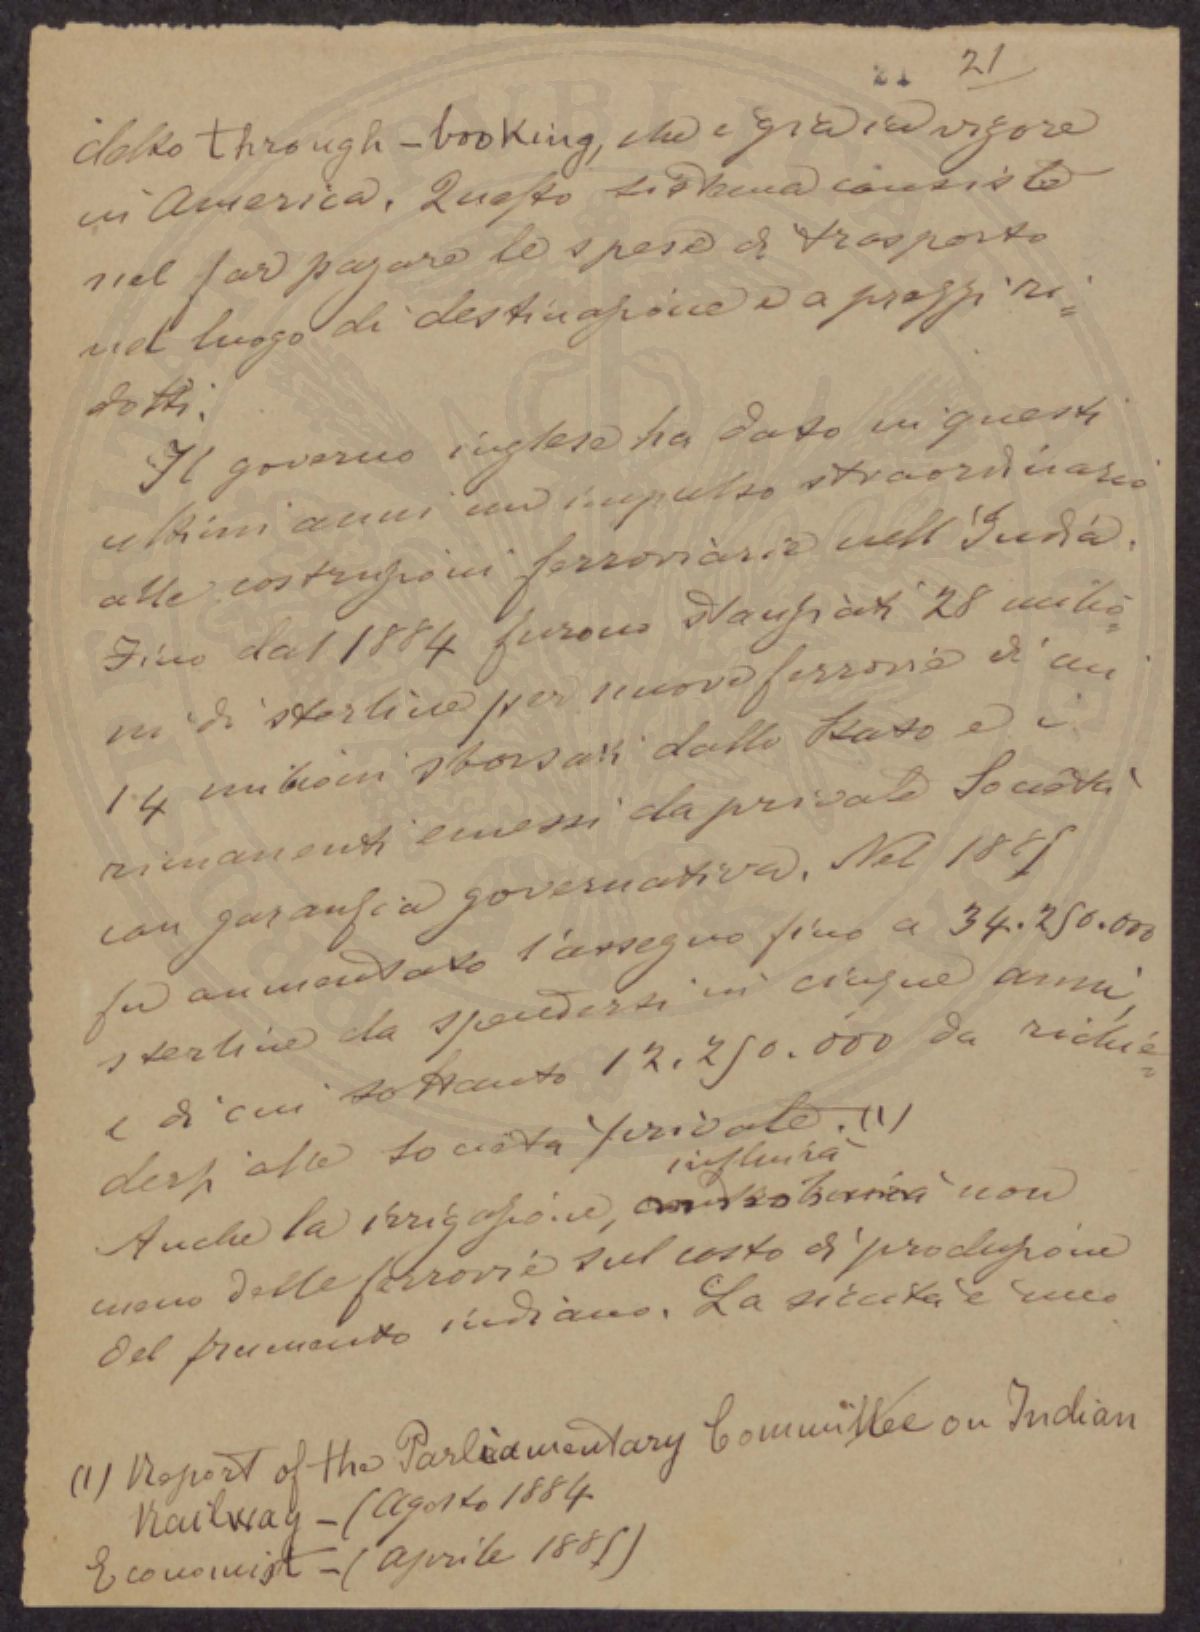 21 21
detto through-booking, che è già in vigore
in America. Questo sistema consiste
nel far pagare le spese di trasporto
nel luogo di destinazione e a prezzi ri=
dotti.
Il governo inglese ha dato in questi
ultimi anni un impulso straordinario
alle costruzioni ferroviarie nell'India.
Fino dal 1884 furono stanziati 28 milio=
ni di sterline per nuove ferrovie di cui
14 milioni sborsati dallo Stato e i
rimanenti emessi da private Società
con garanzia governativa. Nel 1885
fu aumentato l'assegno fino a 34.250.000
sterline da spendersi in cinque anni,
e di cui soltanto 12.250.000 da richie=
dersi alle società private. (1)
influirà
Anche la irrigazione, non
meno delle ferrovie sul costo di produzione
del frumento indiano. La siccità è uno
(1) Report of the Parliamentary Committee on Indian
Railway - (Agosto 1884
Economist - (Aprile 1885)